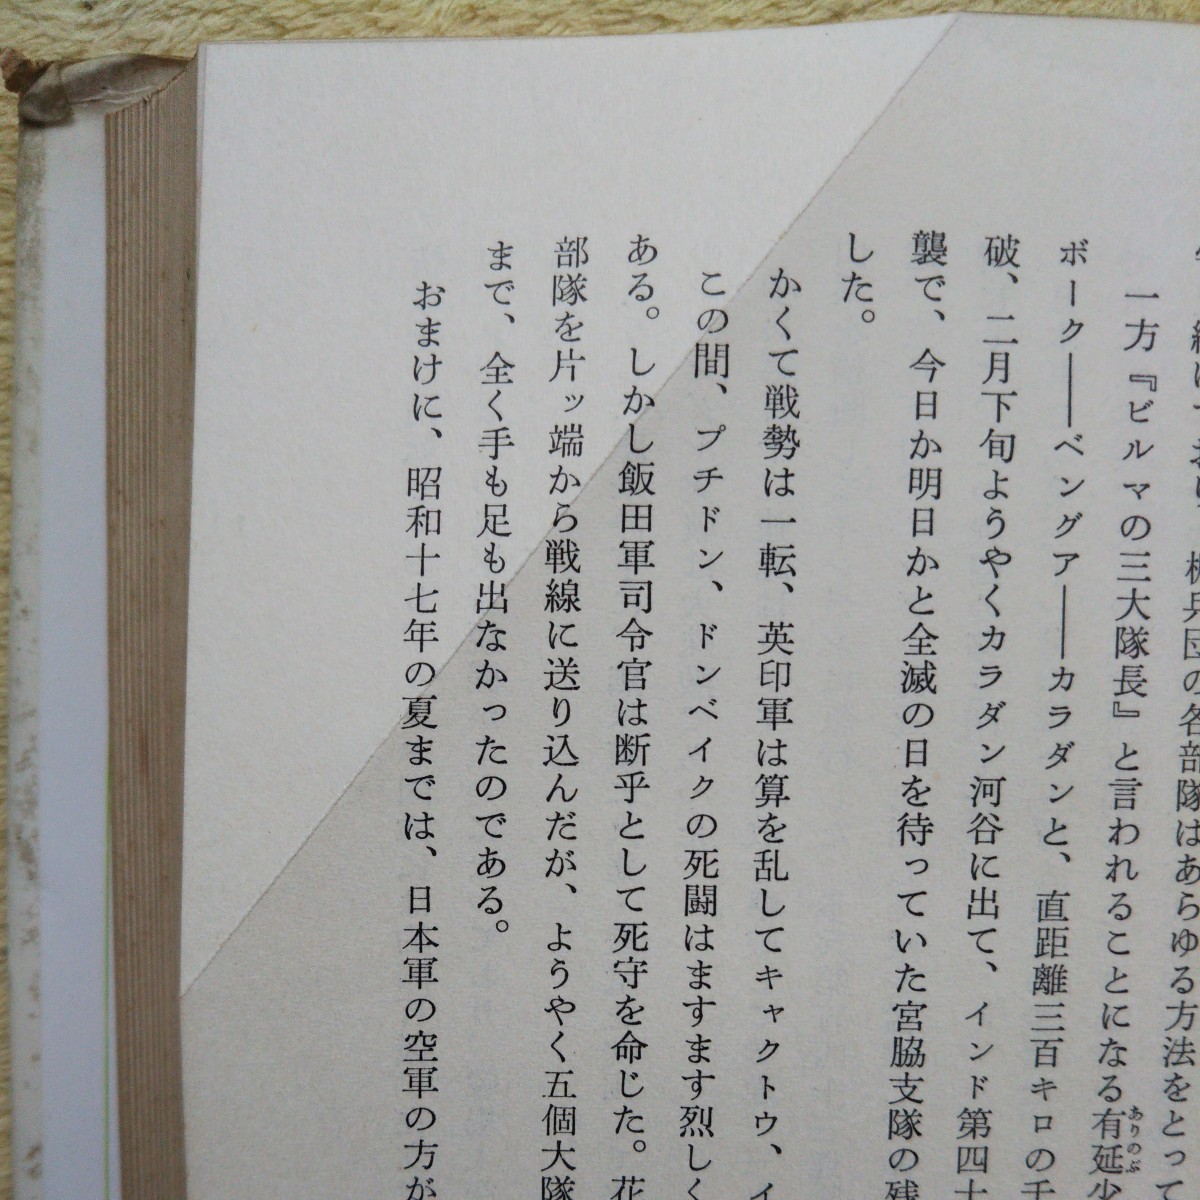 兵団の各部隊はあらゆる方法をとって
一方『ビルマの三大隊長』と言われることになる有延少
ありのぶ
ボーク――ベングア――カラダンと、直距離三百キロの千
破、二月下旬ようやくカラダン河谷に出て、インド第四十
襲で、今日か明日かと全滅の日を待っていた宮脇支隊の残
した。
かくて戦勢は一転、英印軍は算を乱してキャクトウ、イ
この間、プチドン、ドンベイクの死闘はますます烈しく
ある。しかし飯田軍司令官は断乎として死守を命じた。花
部隊を片ッ端から戦線に送り込んだが、ようやく五個大隊
まで、全く手も足も出なかったのである。
おまけに、昭和十七年の夏までは、日本軍の空軍の方が